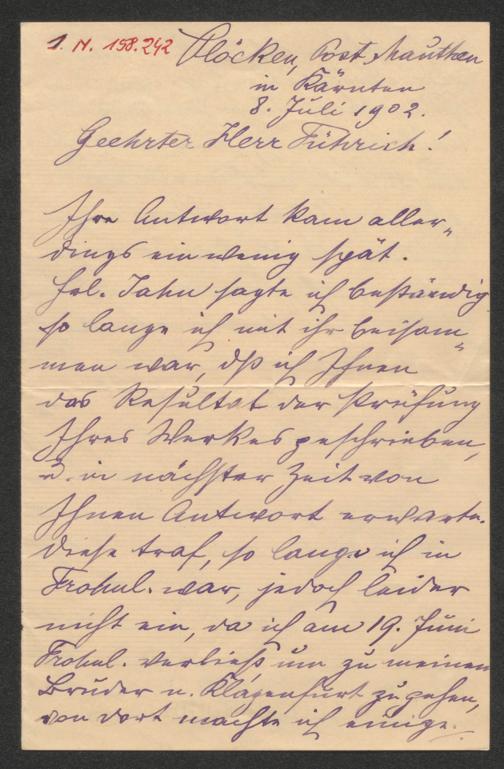 I. N. 198.242
Plöcken, Post Mauthen
in Kärnten
8. Juli 1902.
Geehrter Herr Führich!
Ihre Antwort kam aller„
dings ein wenig spät.
Frl. Jahn sagte ich beständig
so lange ich mit ihr beisam„
men war, dß ich Ihnen
das Resultat der Prüfung
Ihres Werkes geschrieben,
u. in nächster Zeit von
Ihnen Antwort erwarte.
Diese traf, so lange ich in
Frohnl. war, jedoch leider
nicht ein, da ich am 19. Juni
Frohnl. verließ um zu meinem
Bruder n. Klagenfurt zu gehen,
von dort machte ich einige